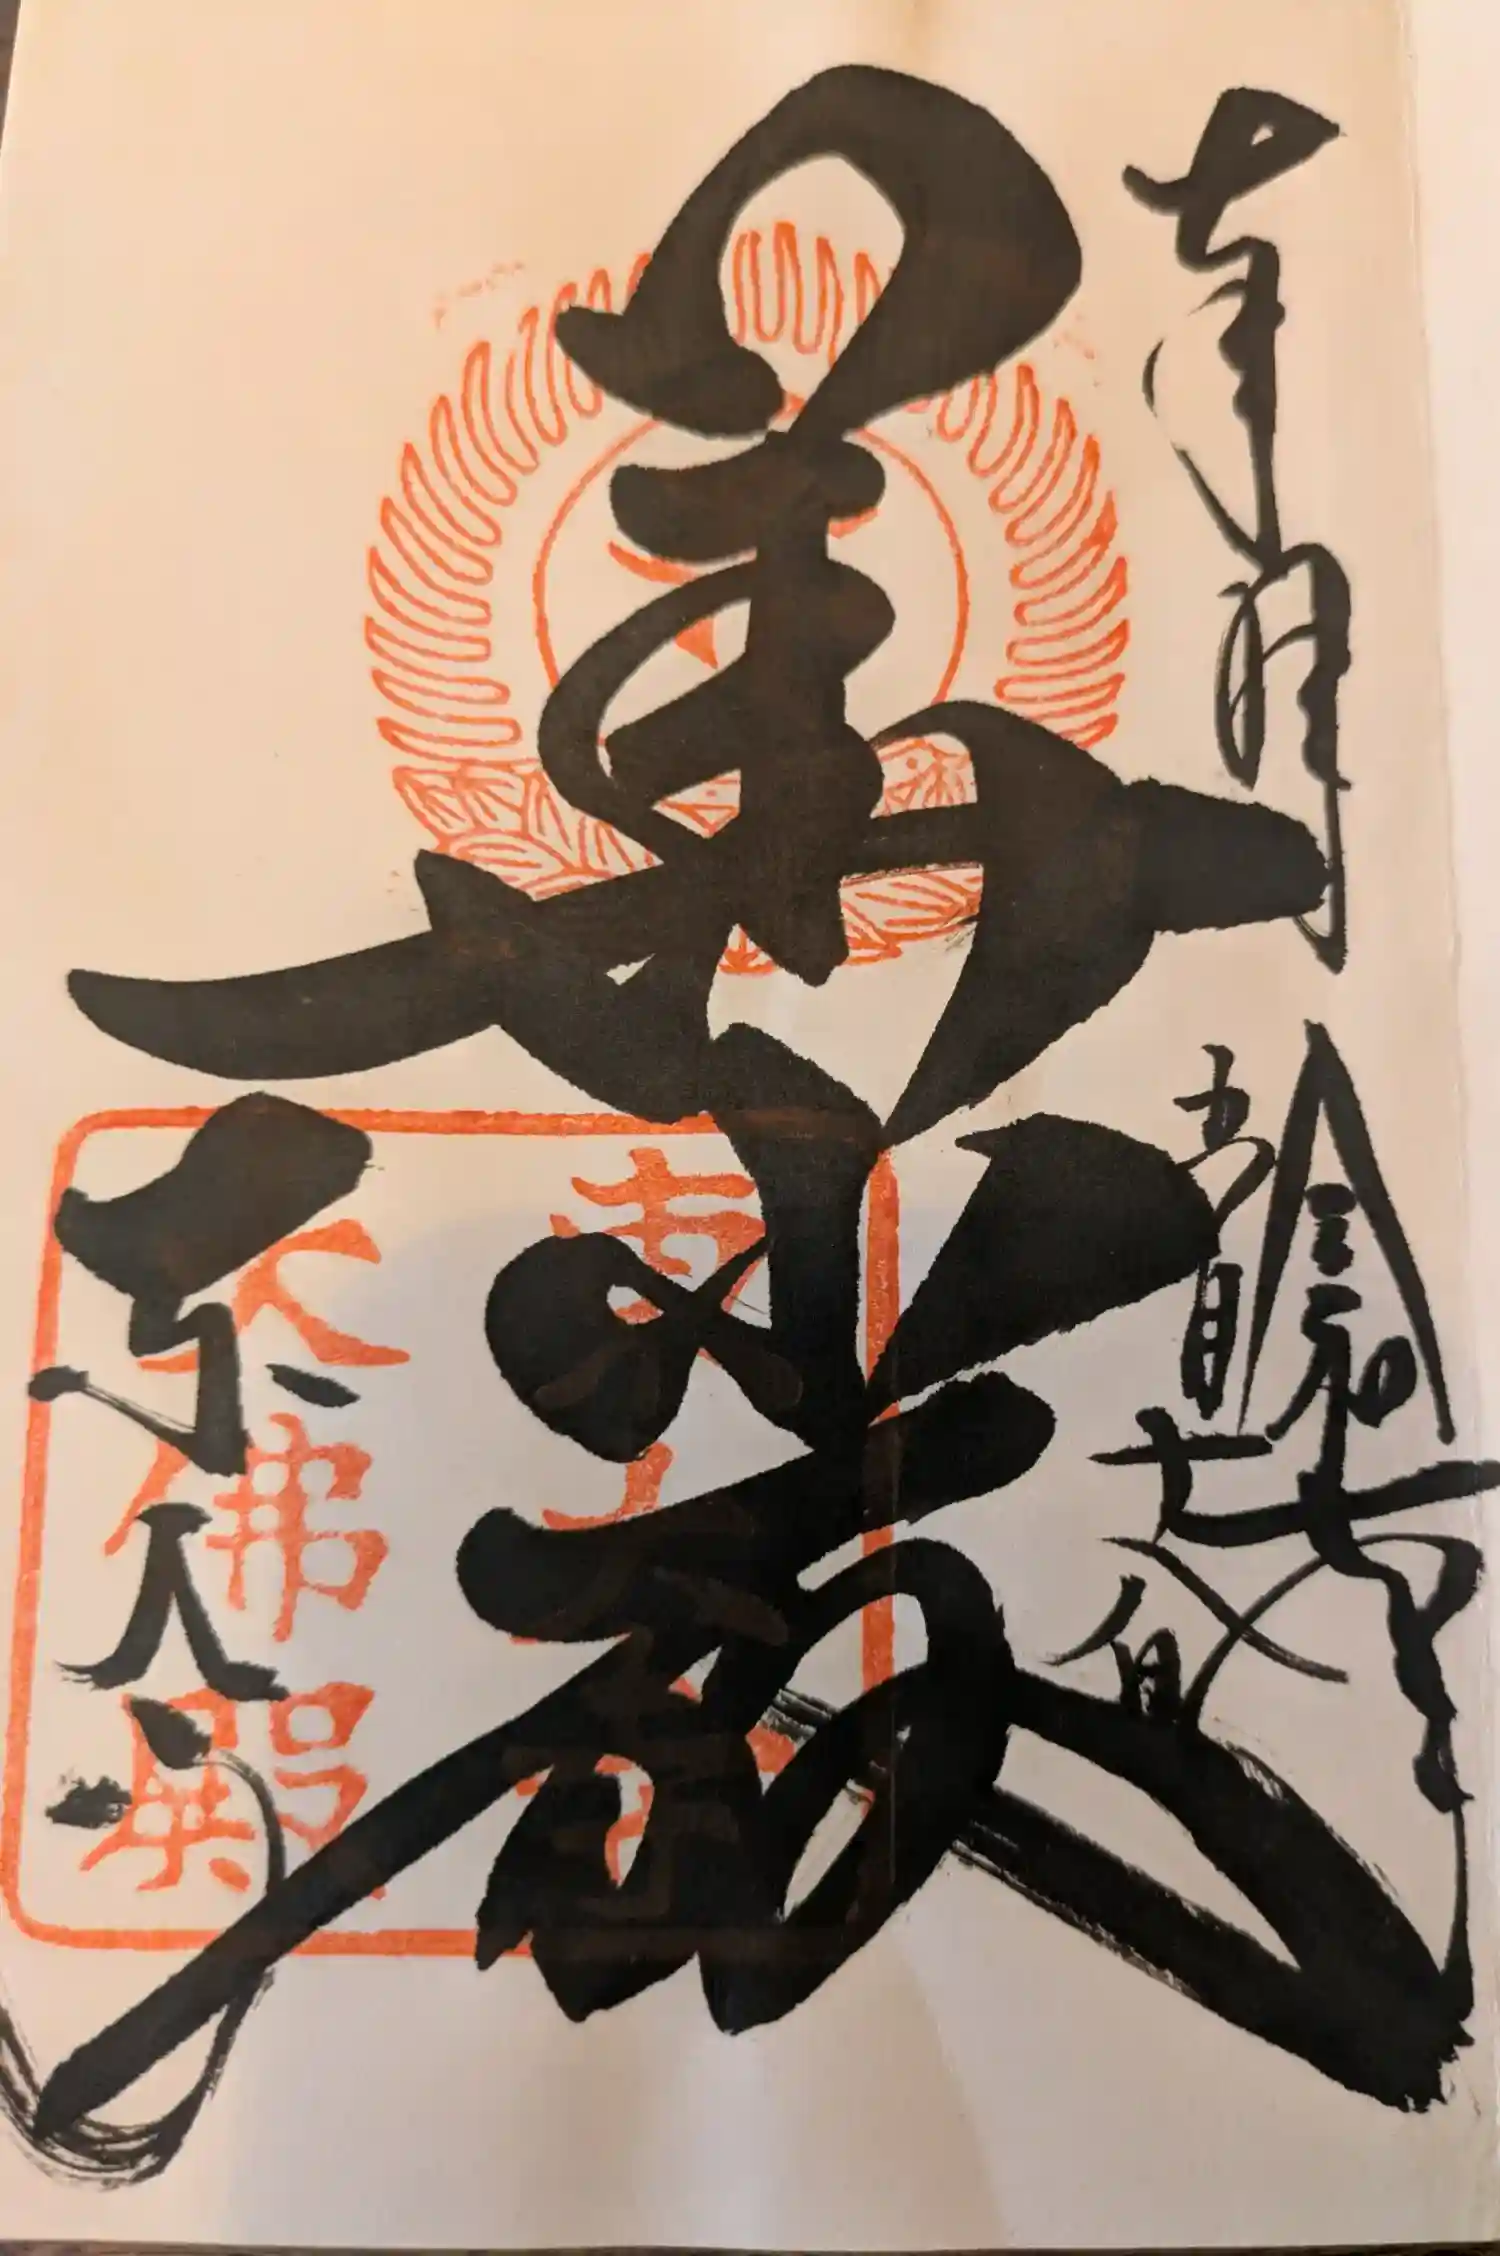 奉拝
令和七年
五月 日
華厳
東大寺
東大寺
大佛殿